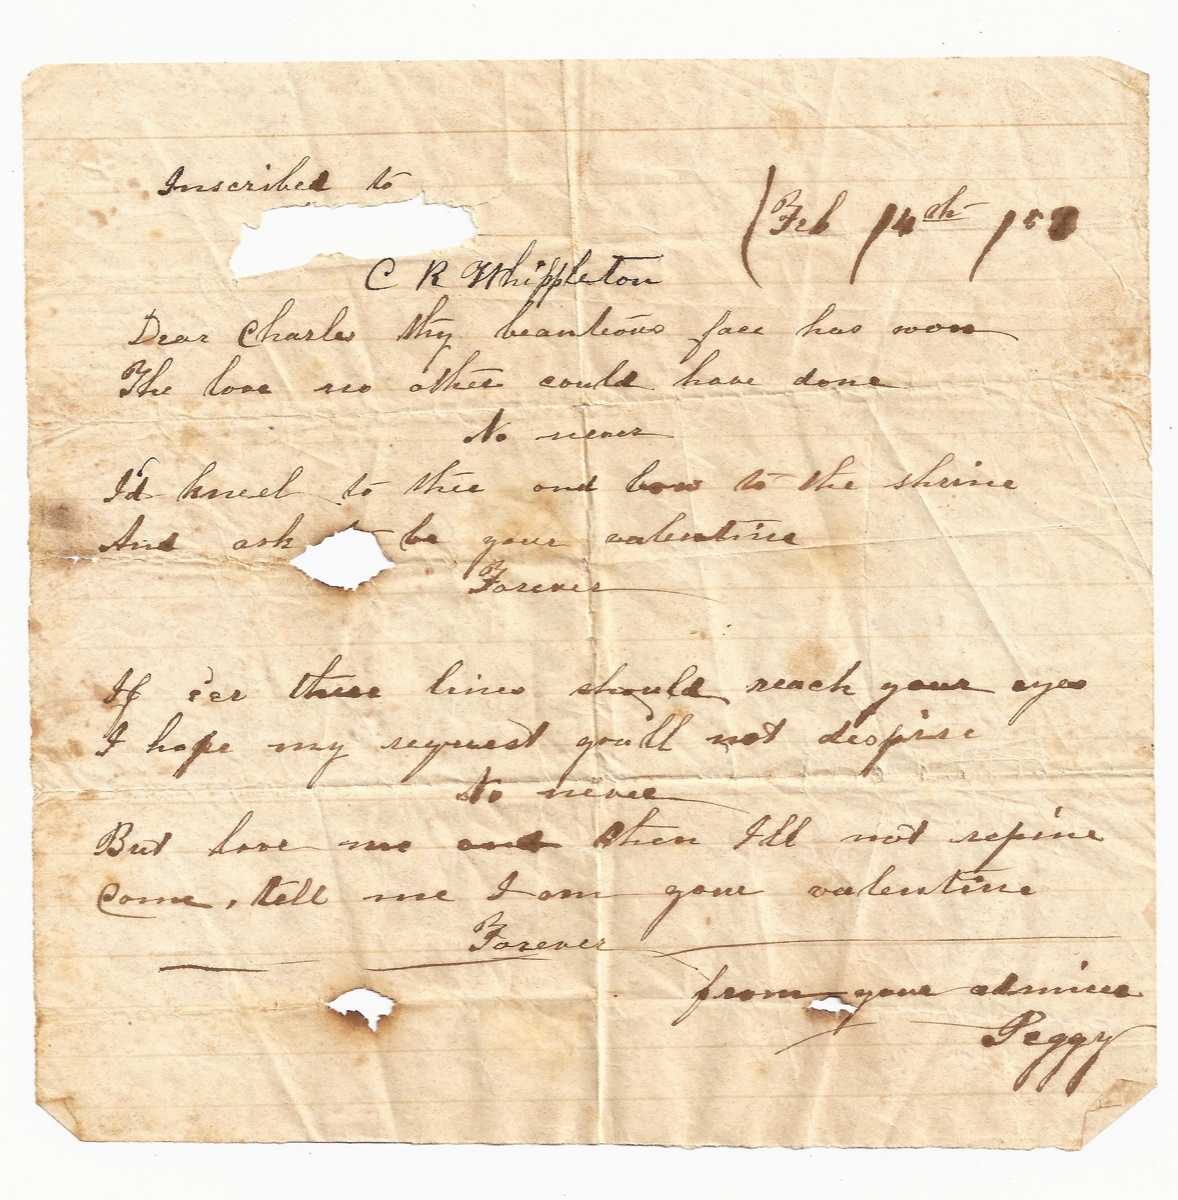 Inscribed to
Feb 14th 185
C R Whippleton
Dear Charles thy beauteous face has won
The love no other could have done
No never
I'd kneel to thee and bow to the shrine
And ask to be your valentine
Forever
If e'er these lines should reach your eyes
I hope my request you'll not despise
No never
But love me and then I'll not repine
Come, tell me I am your valentine
Forever
from your admirer
Peggy